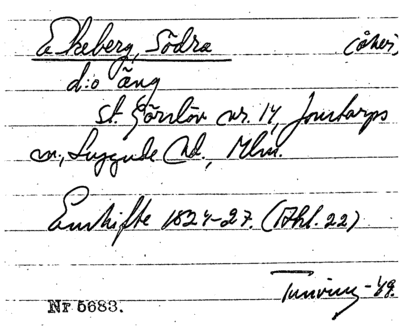 Ekeberg, Södra (åker)
d:o äng
St. Görslöv nr. 14, Jonstorps
sn, Luggude hd., Mlm.
Enskifte 1824-27. (Akt. 22)
Tunving - Yg.
Nr 5683.